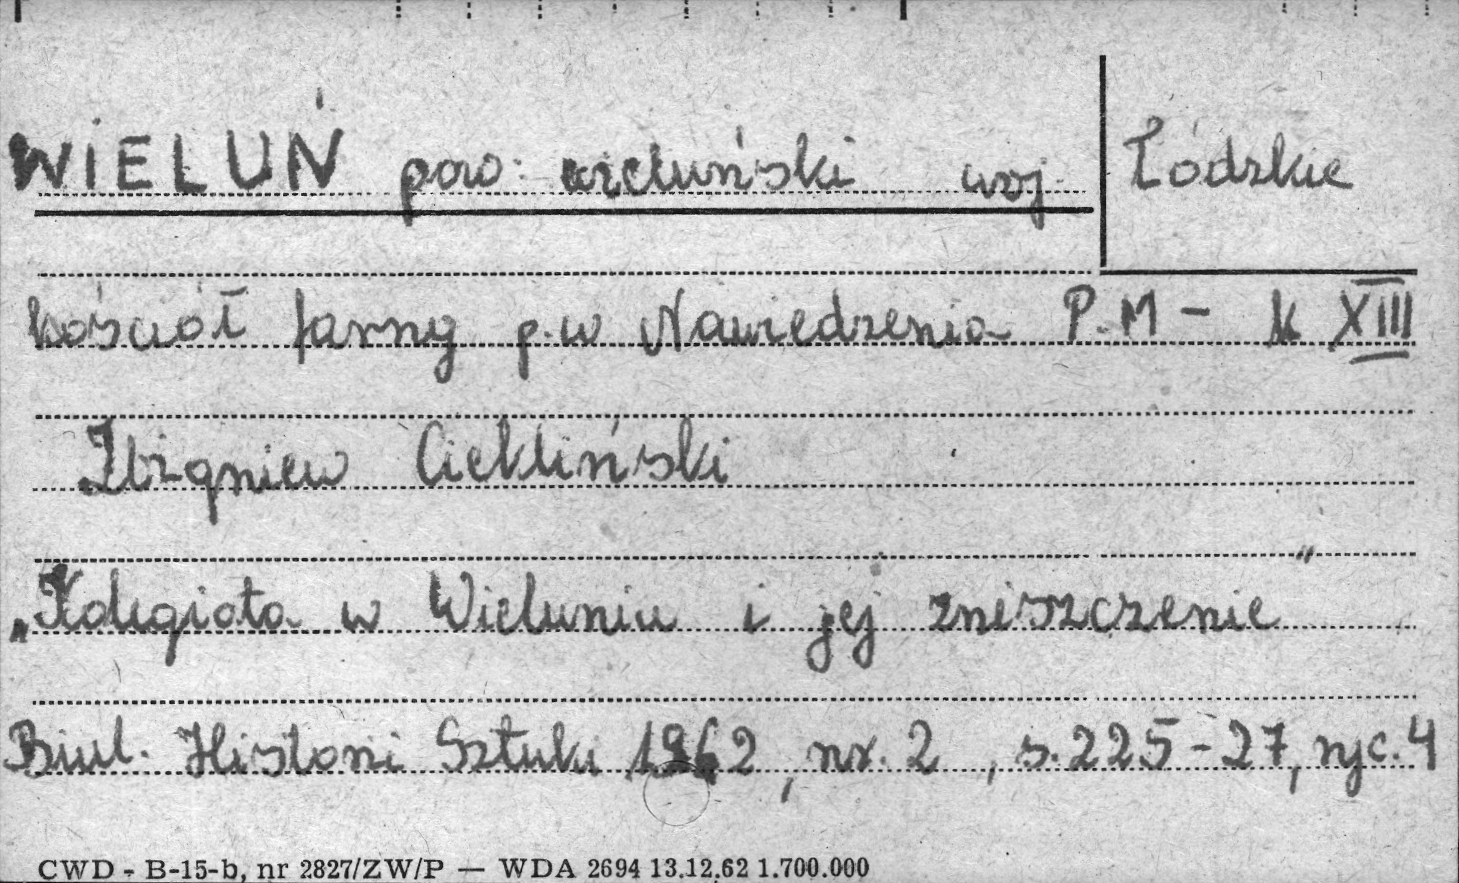 WIELUŃ pow. wieluński woj. Łódzkie
kościół farny p.w Nawiedzenia P.M - k XIII
Zbigniew Ciekliński
„Kolegiata w Wieluniu i jej zniszczenie"
Biul. Historii Sztuki 1962, nr. 2, s. 225-27, ryc. 4
CWD - B-15-b, nr 2827/ZW/P — WDA 2694 13.12.62 1.700.000